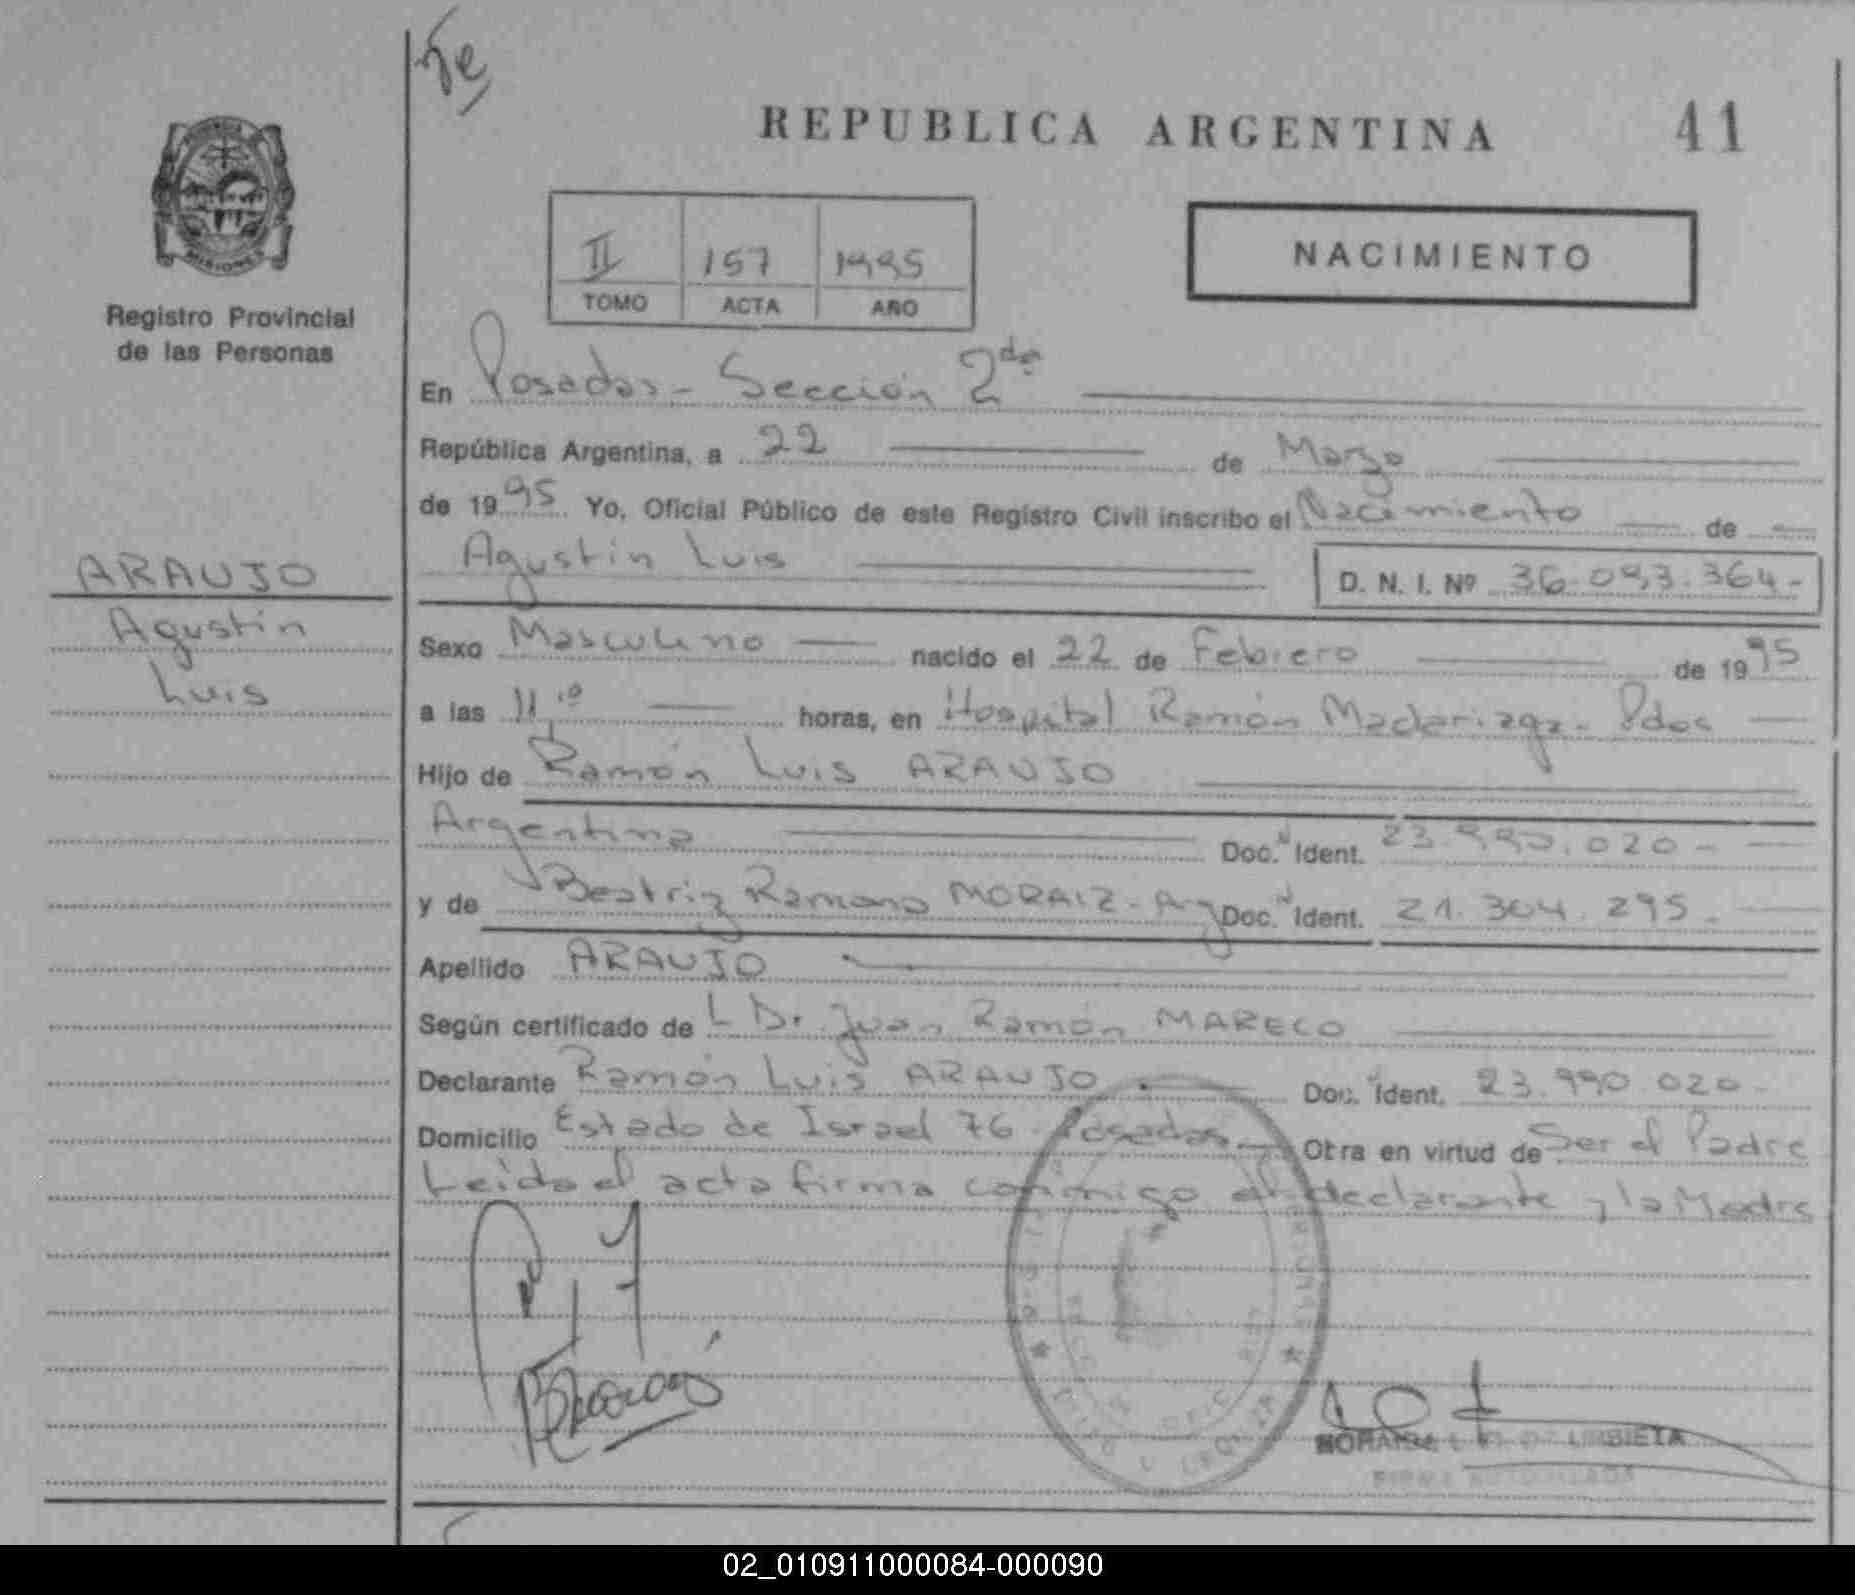 REPUBLICA ARGENTINA 41
MISIONES
Registro Provincial
de las Personas
II 157 1995
TOMO ACTA AÑO
NACIMIENTO
En Posadas - Sección 2da
República Argentina, a 22 de Marzo
de 1995 Yo, Oficial Público de este Registro Civil inscribo el Nacimiento de
Agustín Luis D. N. I. Nº 36.093.364-
ARAUJO
Agustín
Luis
Sexo Masculino nacido el 22 de Febrero de 1995
a las 11,10 horas, en Hospital Ramón Madariaga - Pdas
Hijo de Ramón Luis ARAUJO
Argentina Doc. Ident. 23.990.020-
y de Beatriz Ramona MORAIZ - Arg Doc. Ident. 21.304.295-
Apellido ARAUJO
Según certificado de L Dr. Juan Ramón MARECO
Declarante Ramón Luis ARAUJO Doc. Ident. 23.990.020-
Domicilio Estado de Israel 76 - Posadas - Otra en virtud de Ser el Padre
Leida el acta firma conmigo el declarante y la Madre
URBIETA
02_010911000084-000090